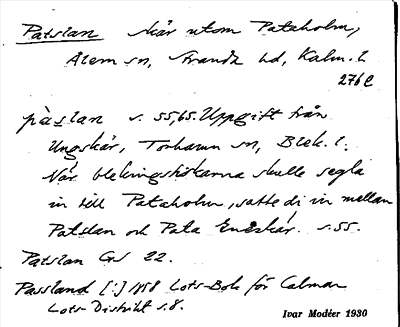 Patslan skär utom Pataholm,
Ålem sn, Stranda hd, Kalm. l.
276c
pàslan s. 55,65. Uppgift från
Ungskär, Torhamn sn, Blek. l.
När blekingsskötarna skulle segla
in till Pataholm, satte di in mellan
Patslan och Pata Eneskär. s. 55.
Patslan GS 22.
Passland [:] 1858 Lots-Bok för Calmar
Lots-Distrikt s. 8.
Ivar Modéer 1930